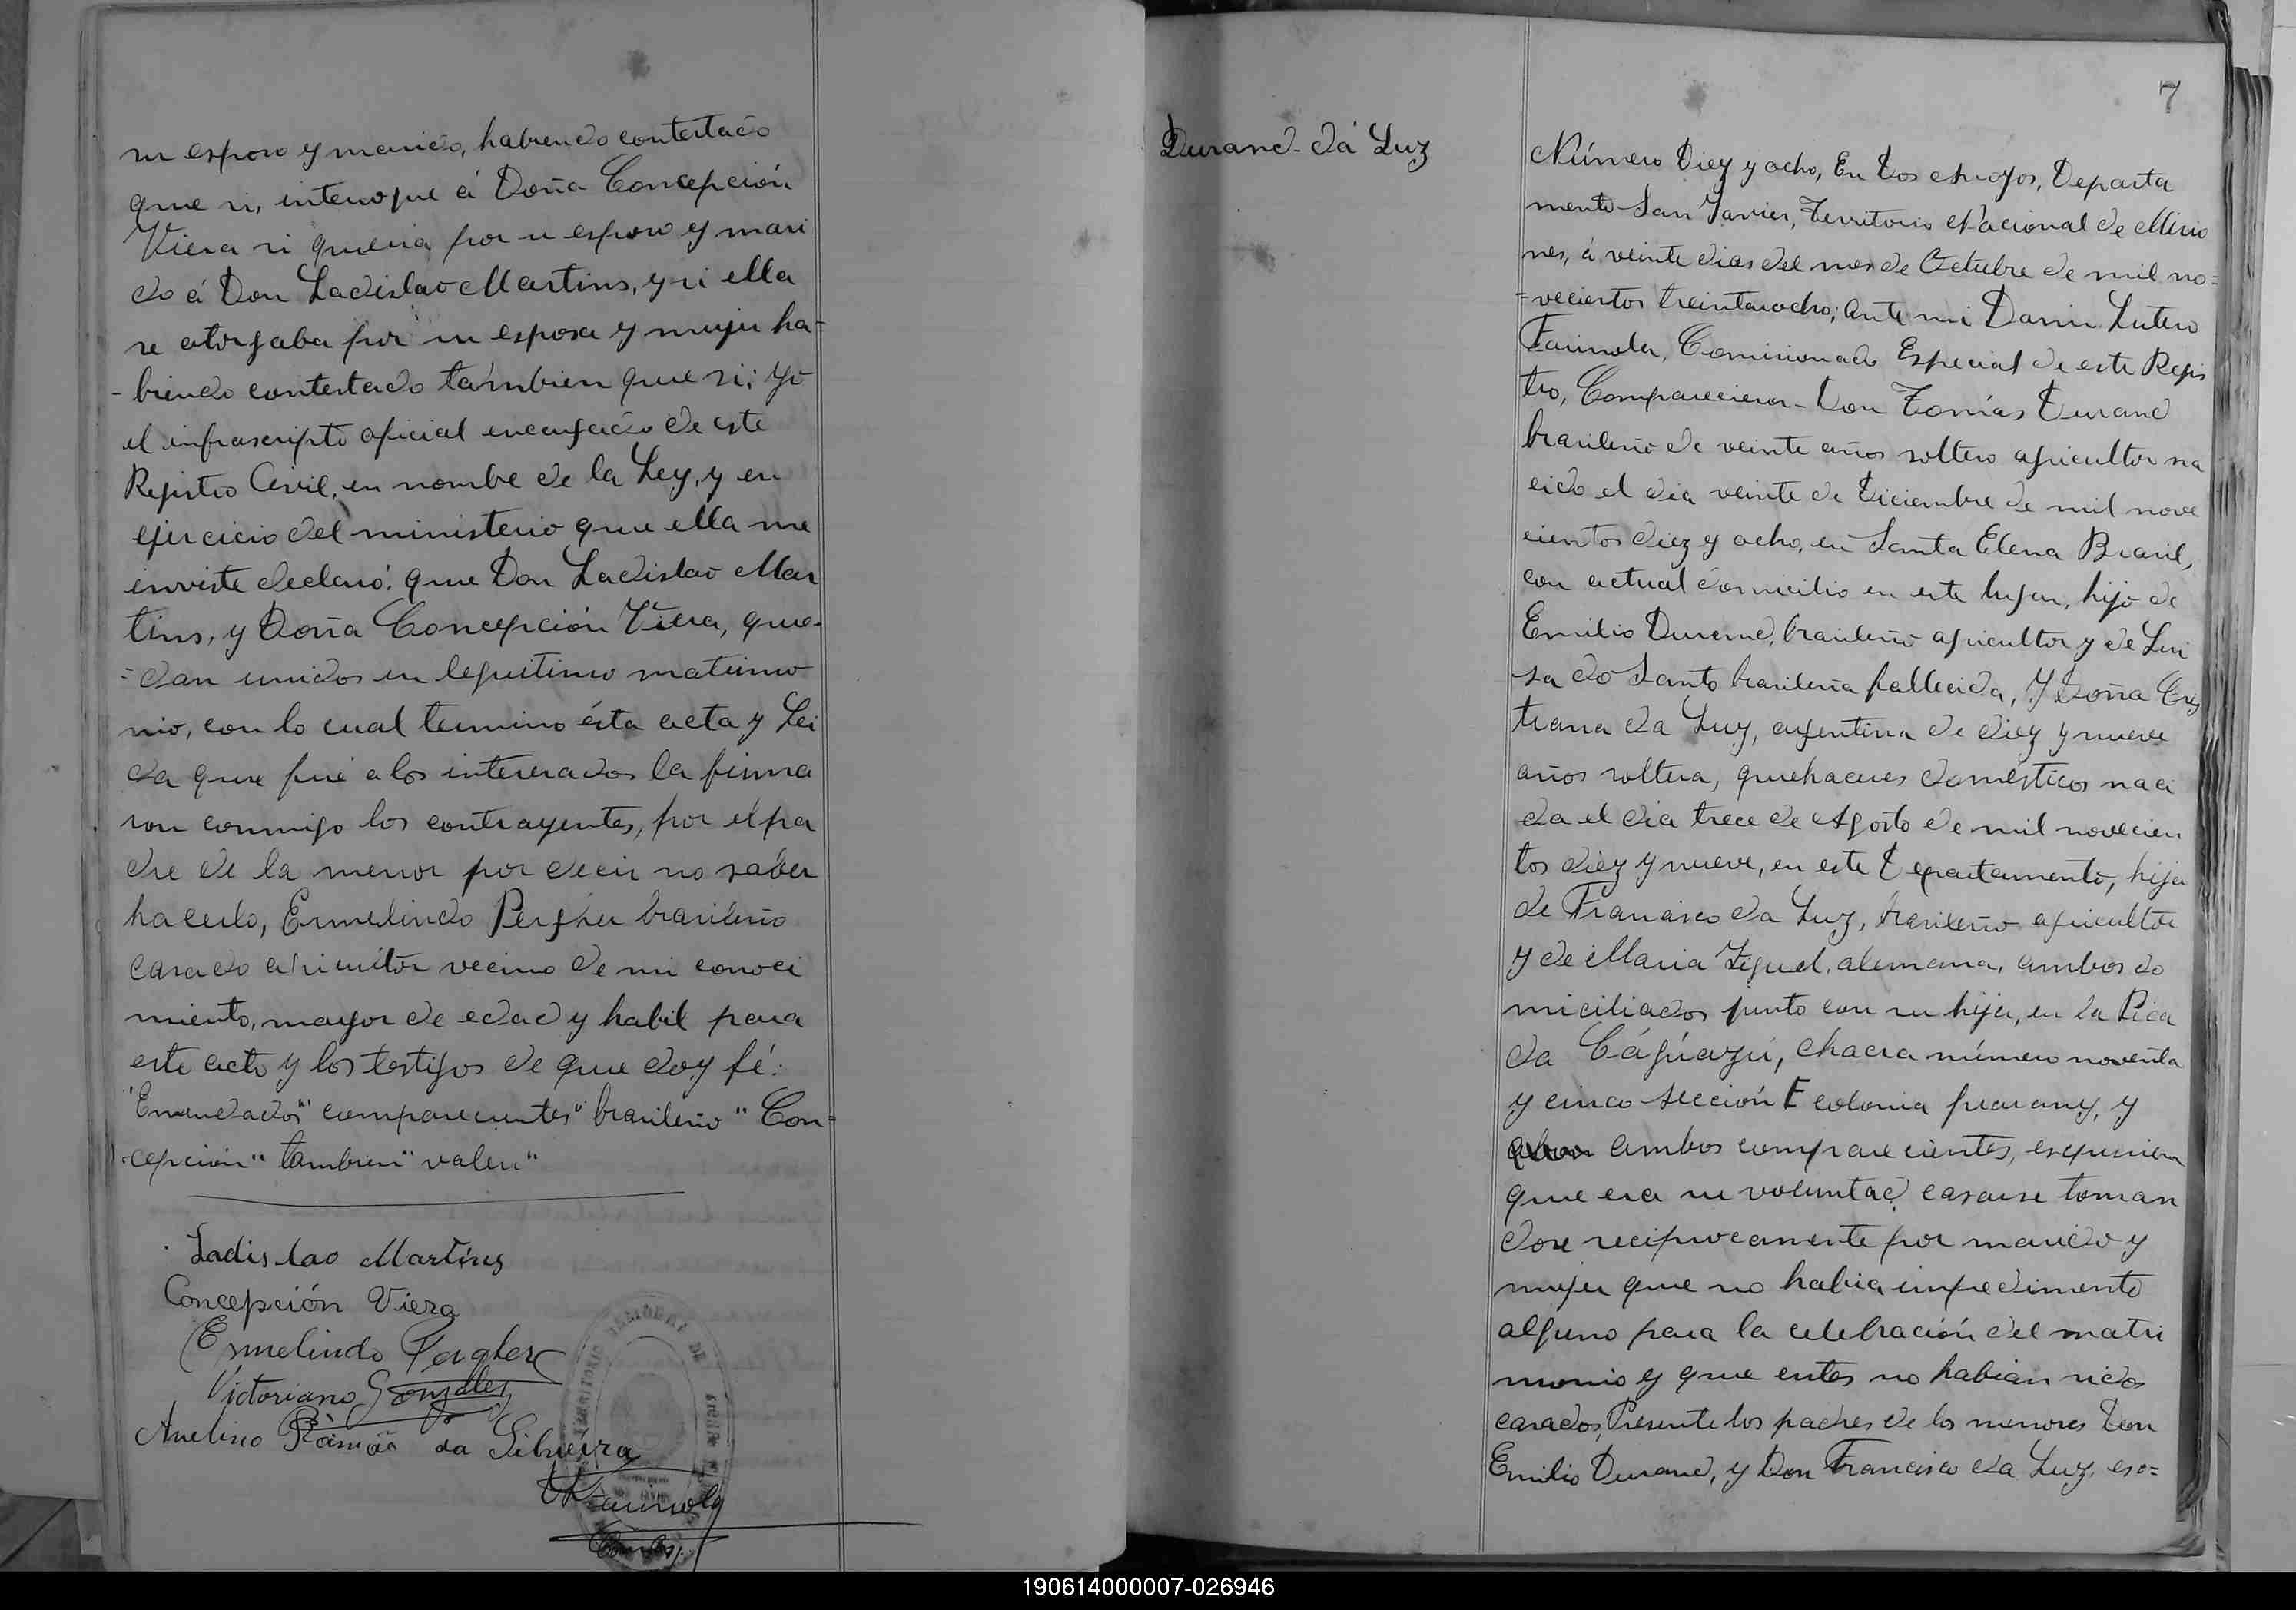 su esposo y marido, habiendo contestado
que si, interogue á Doña Concepción
Viera si queria por su esposo y mari
do á Don Ladislao Martins, y si ella
se otorgaba por su esposa y mujer ha=
-biendo contestado támbien que si; yó
el infrascripto oficial encargado de este
Registro Civil, en nombre de la Ley, y en
ejercicio del ministerio que ella me
inviste declaró: que Don Ladislao Mar
tins, y Doña Concepción Viera, que-
=dan unidos en leguitimo matrimo
nio, con lo cual termino ésta acta y Lei
da que fué a los interesados la firma
ron conmigo los contrayentes, por el pa
dre de la menor por decir no saber
hacerlo, Ermelindo Pergher brasileño
casado agricultor vecino de mi conoci
miento, mayor de edad y habil para
este acto y los testigos de que doy fé:
"Enmendados" comparecientes" brasileño" Con=
-cepción" tambien" valen"
Ladislao Martins
Concepción Viera
Ermelindo Pergher
Victoriano Gonzalez
Avelino Ramão da Silveira
7
Durand-dá Luz
Número Diez y ocho, En Dos Arroyos, Departa
mento San Javier, Territorio Nacional de Misio
nes, á veinte dias del mes de Octubre de mil no=
=vecientos treintaiocho; ante mi Dann Lutero
Farinola, Comisionado Especial de este Regis
tro, Comparecieron Don Tomás Durand
brasileño de veinte años soltero agricultor na
cido el dia veinte de Diciembre de mil nove
cientos diez y ocho, en Santa Elena Brasil,
con actual domicilio en este lugar, hijo de
Emilio Durand, brasileño agricultor y de Lui
sa do Santo brasileña fallecida, Y Doña Cris
tiana da Luz, argentina de diez y nueve
años soltera, quehaceres domésticos naci
da el dia trece de Agosto de mil novecien
tos diez y nueve, en este Departamento, hija
de Francisco da Luz, brasileño agricultor
y de Maria Ziguel, alemana, ambos do
miciliados junto con su hija, en la Pica
da Cáguazú, chacra número noventa
y cinco sección E colonia guarany, y
ambos comparecientes, expusieron
que era su voluntad casarse toman
dose reciprocamente por marido y
mujer que no habia impedimento
alguno para la celebración del matri
monio y que entes no habian sidos
casados, Presente los padres de los menores Don
Emilio Durand, y Don Francisco da Luz, ex=
190614000007-026946